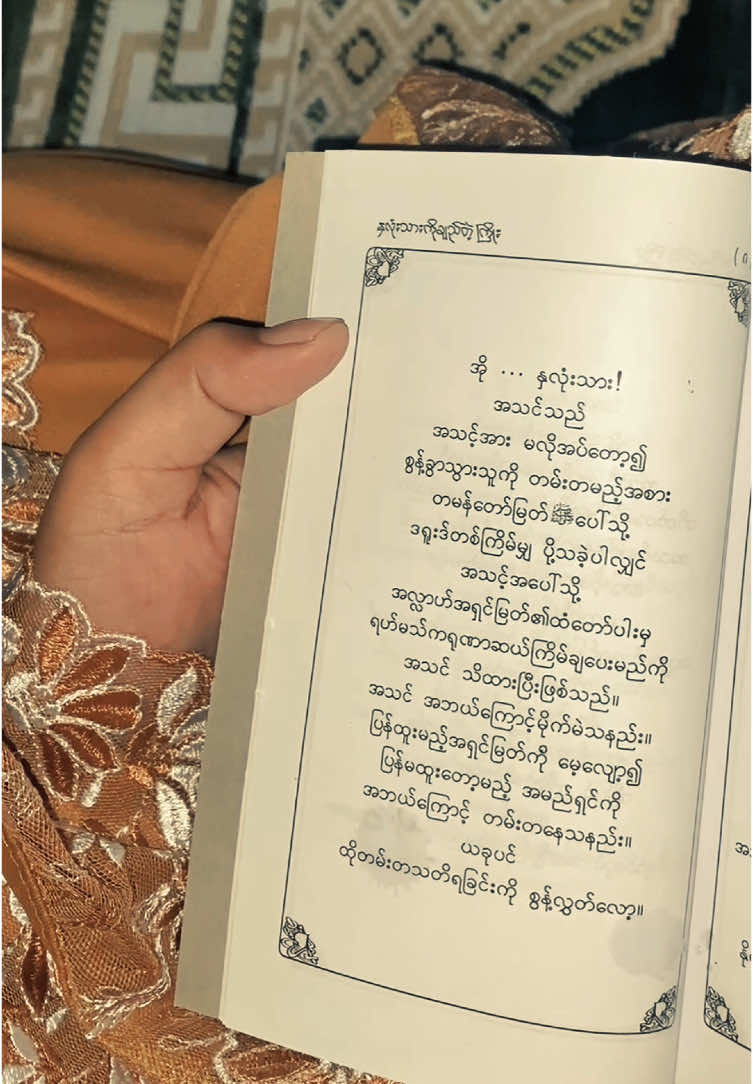 နှလုံးသားကိုချည်တဲ့ ကြိုး
အို ... နှလုံးသား!
အသင်သည်
အသင့်အား မလိုအပ်တော့၍
စွန့်ခွာသွားသူကို တမ်းတမည့်အစား
တမန်တော်မြတ်ﷺပေါ်သို့
ဒရူးဒ်တစ်ကြိမ်မျှ ပို့သခဲ့ပါလျှင်
အသင့်အပေါ်သို့
အလ္လာဟ်အရှင်မြတ်၏ထံတော်ပါးမှ
ရဟ်မသ်ကရုဏာဆယ်ကြိမ်ချပေးမည်ကို
အသင် သိထားပြီးဖြစ်သည်။
အသင် အဘယ်ကြောင့်မိုက်မဲသနည်း။
ပြန်ထူးမည့်အရှင်မြတ်ကို မေ့လျော့၍
ပြန်မထူးတော့မည့် အမည်ရှင်ကို
အဘယ်ကြောင့် တမ်းတနေသနည်း။
ယခုပင်
ထိုတမ်းတသတိရခြင်းကို စွန့်လွှတ်လော့။